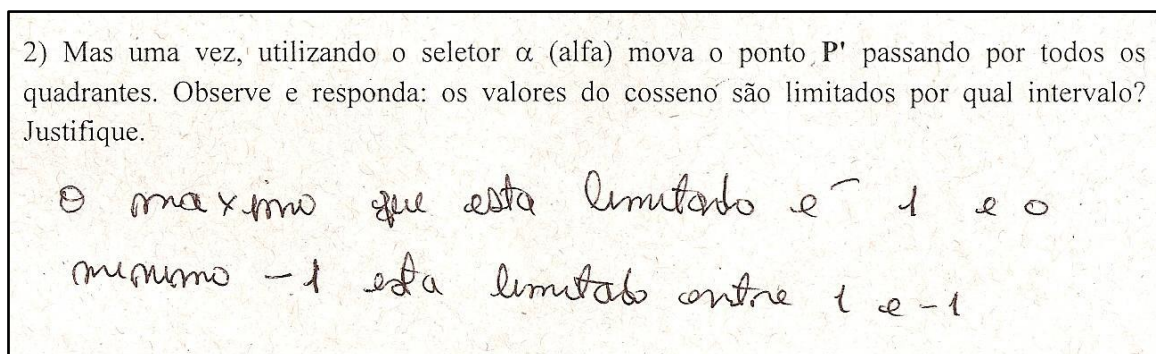 2) Mas uma vez, utilizando o seletor α (alfa) mova o ponto P' passando por todos os
quadrantes. Observe e responda: os valores do cosseno são limitados por qual intervalo?
Justifique.
O maximo que esta limitado e 1 e o
minimo -1 esta limitado entre 1 e -1